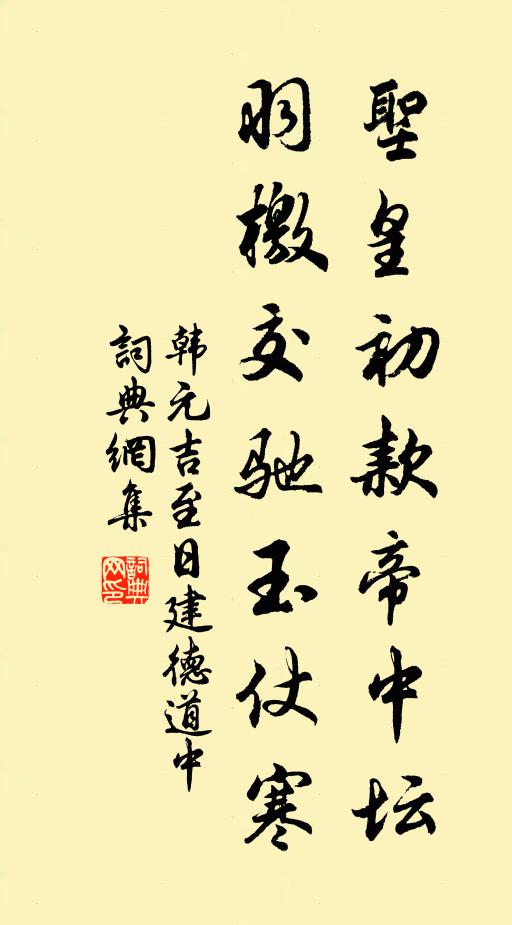 聖皇初款帝中坛
羽檄交驰玉仗寒
韩元吉至日建德道中
詞典網集
詞典网印